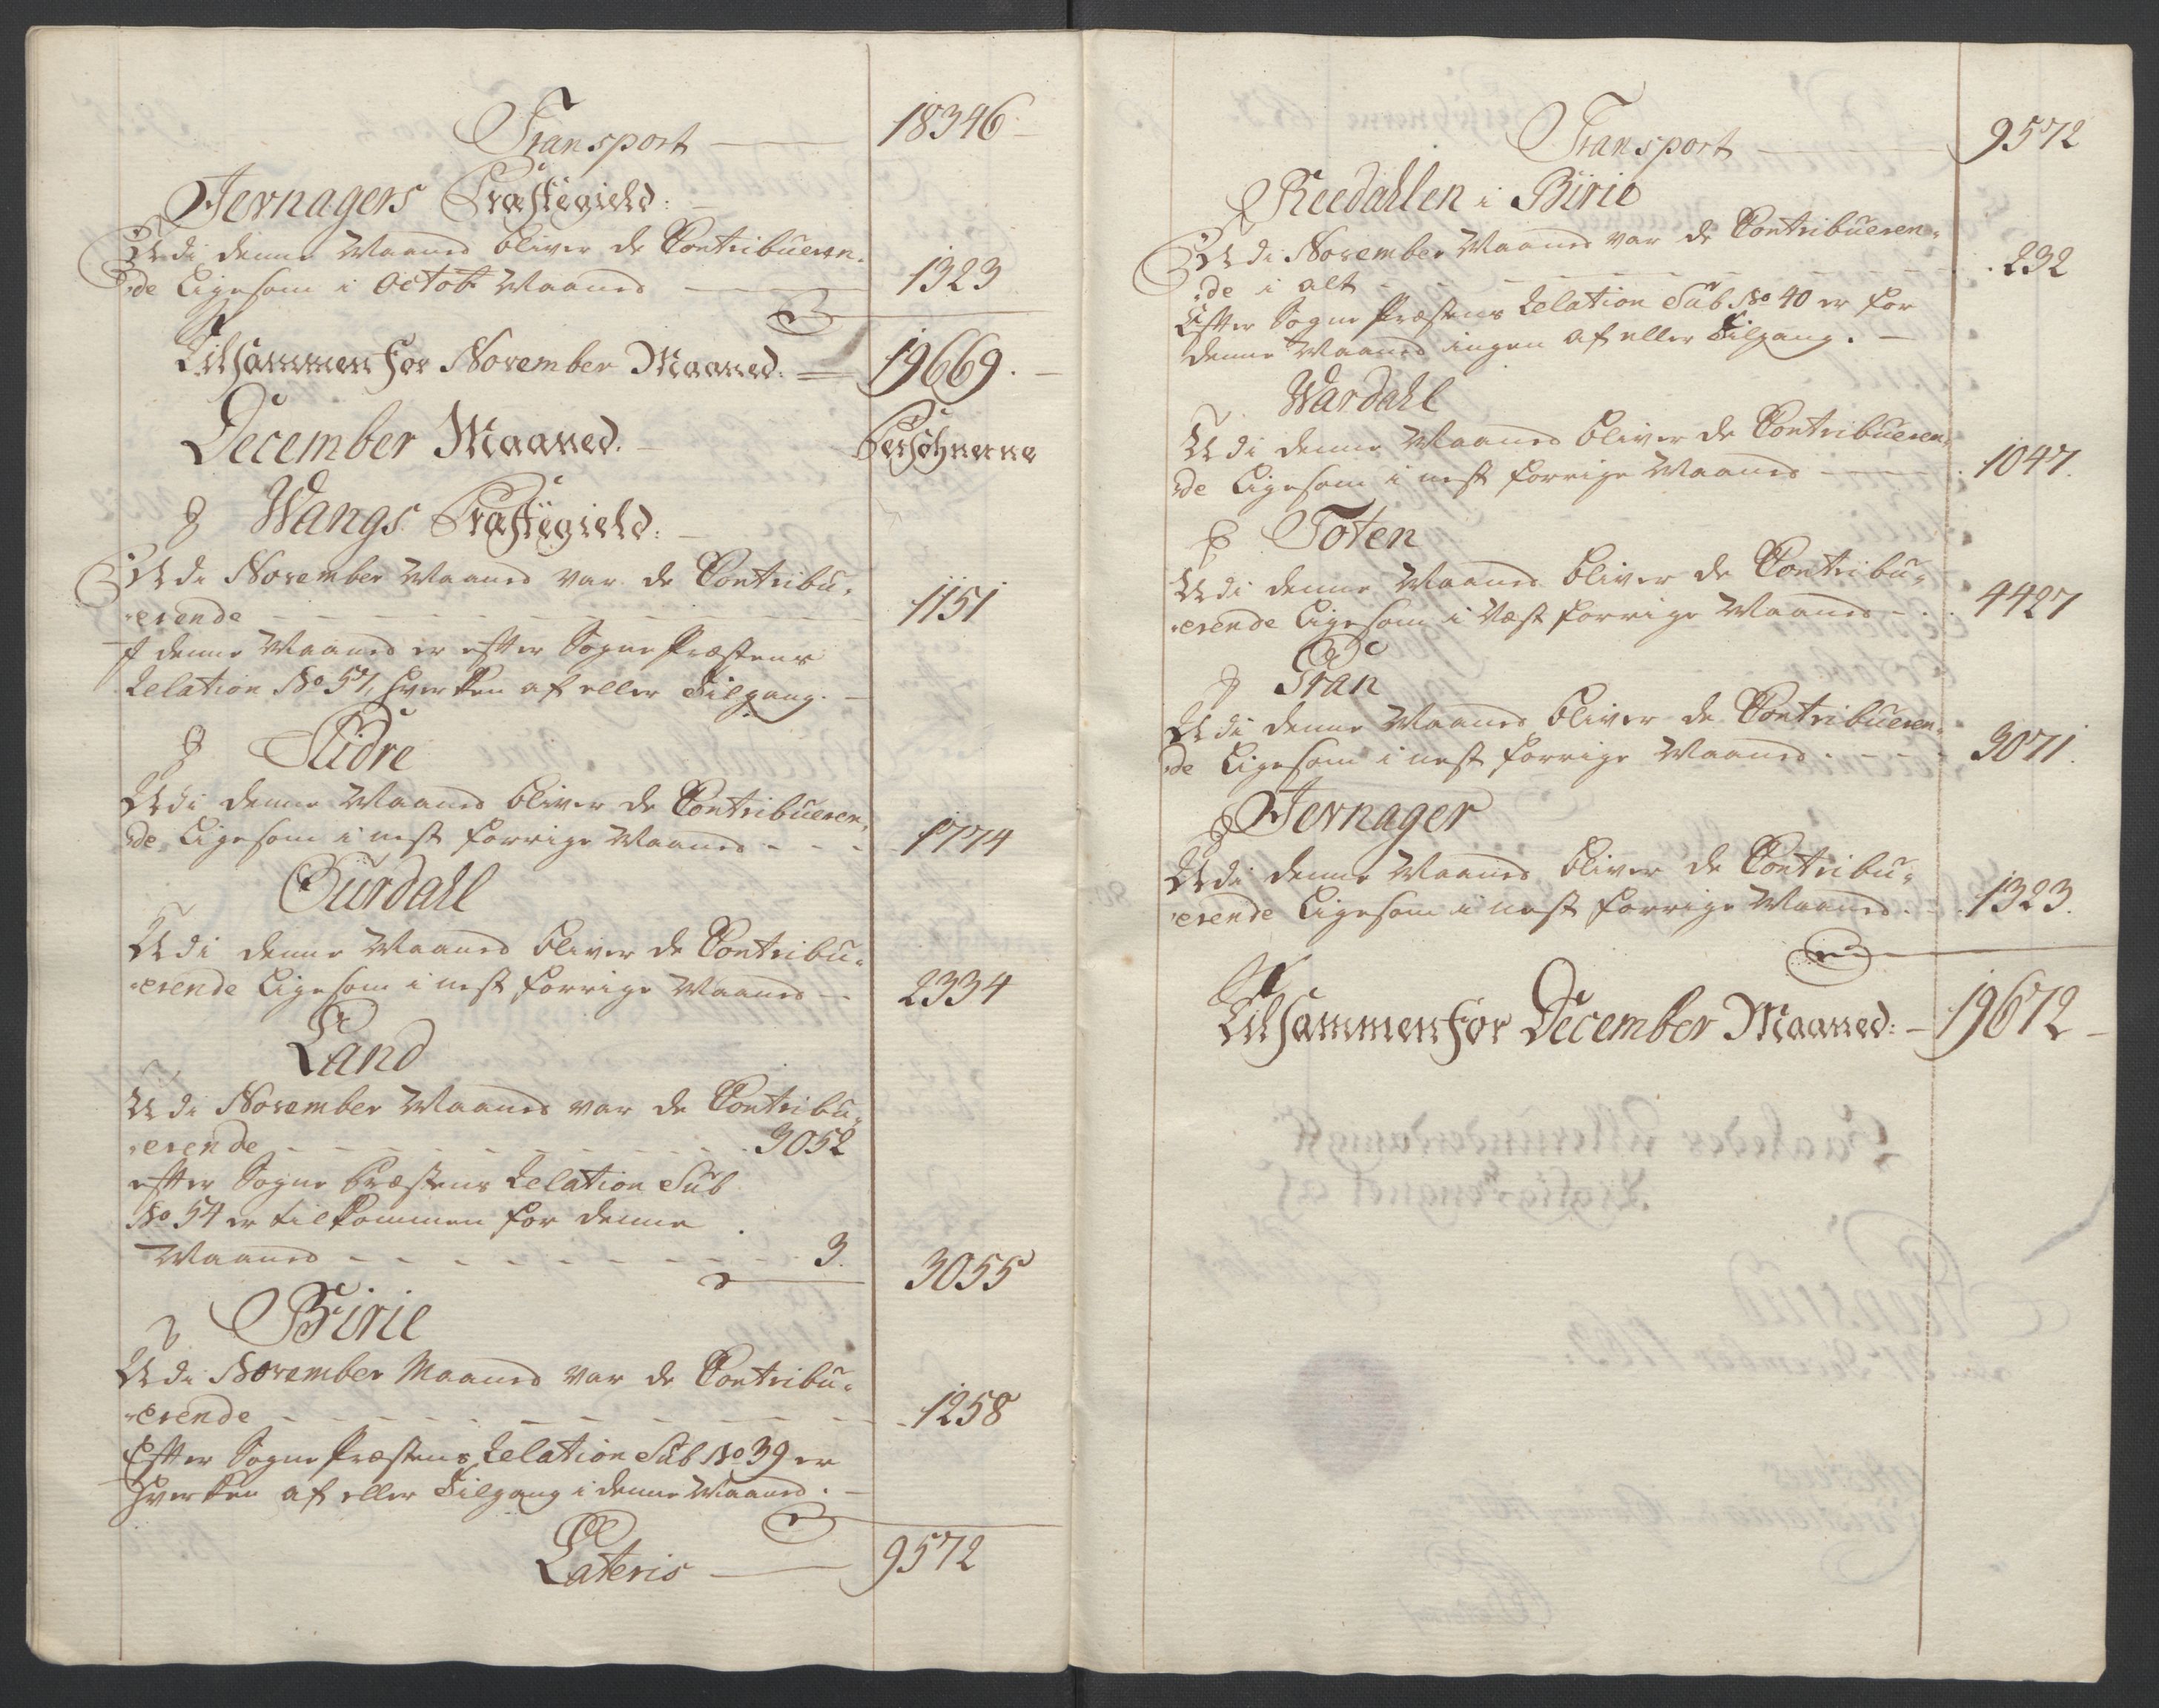 Transport — 18346
Jevnagers Præstegield:
Udi denne Maaned bliver de Contribueren-
de Ligesom i Octob Maaned — 1323
Tilsammen for November Maaned. — 19669.
December Maaned. — Persohnerne
J Wangs Præstegield:
Udi November Maaned var de Contribu-
erende — 1151
I denne Maaned er efter Sogne Præstens
Relation No 57, hverken af eller Tilgang. —
J Slidre
Udi denne Maaned bliver de Contribueren-
de Ligesom i nest forrige Maaned - - - 1774
Ourdahl
Udi denne Maaned bliver de Contribu-
erende Ligesom i nest forrige Maaned - - 2334
Land
Udi November Maaned var de Contribu-
erende - - - 3052
efter Sogne Præstens Relation Sub
No 54 er tilkommen for denne
Maaned - - - 3. 3055
J Birie
Udi November Maaned var de Contribu-
erende - - - 1258
Efter Sogne Præstens Relation Sub No 39 er
hverken af eller Tilgang i denne Maaned. —
Lateris — 9572
Transport — 9572
Reedahlen i Birie
Udi November Maaned var de Contribueren-
de i alt - - - 232
Efter Sogne Præstens Relation Sub No 40 er for
denne Maaned ingen af eller Tilgang. —
Wardahl
Udi denne Maaned bliver de Contribueren-
de Ligesom i nest forrige Maaned - - - 1047.
Toten
Udi denne Maaned bliver de Contribu-
erende Ligesom i Næst forrige Maaned - - 4427
J Gran
Udi denne Maaned bliver de Contribueren-
de Ligesom i nest forrige Maaned - - - 3071.
J Jevnager
Udi denne Maaned bliver de Contribu-
erende Ligesom i nest forrige Maaned - - 1323.
Tilsammen for December Maaned: — 19672 —